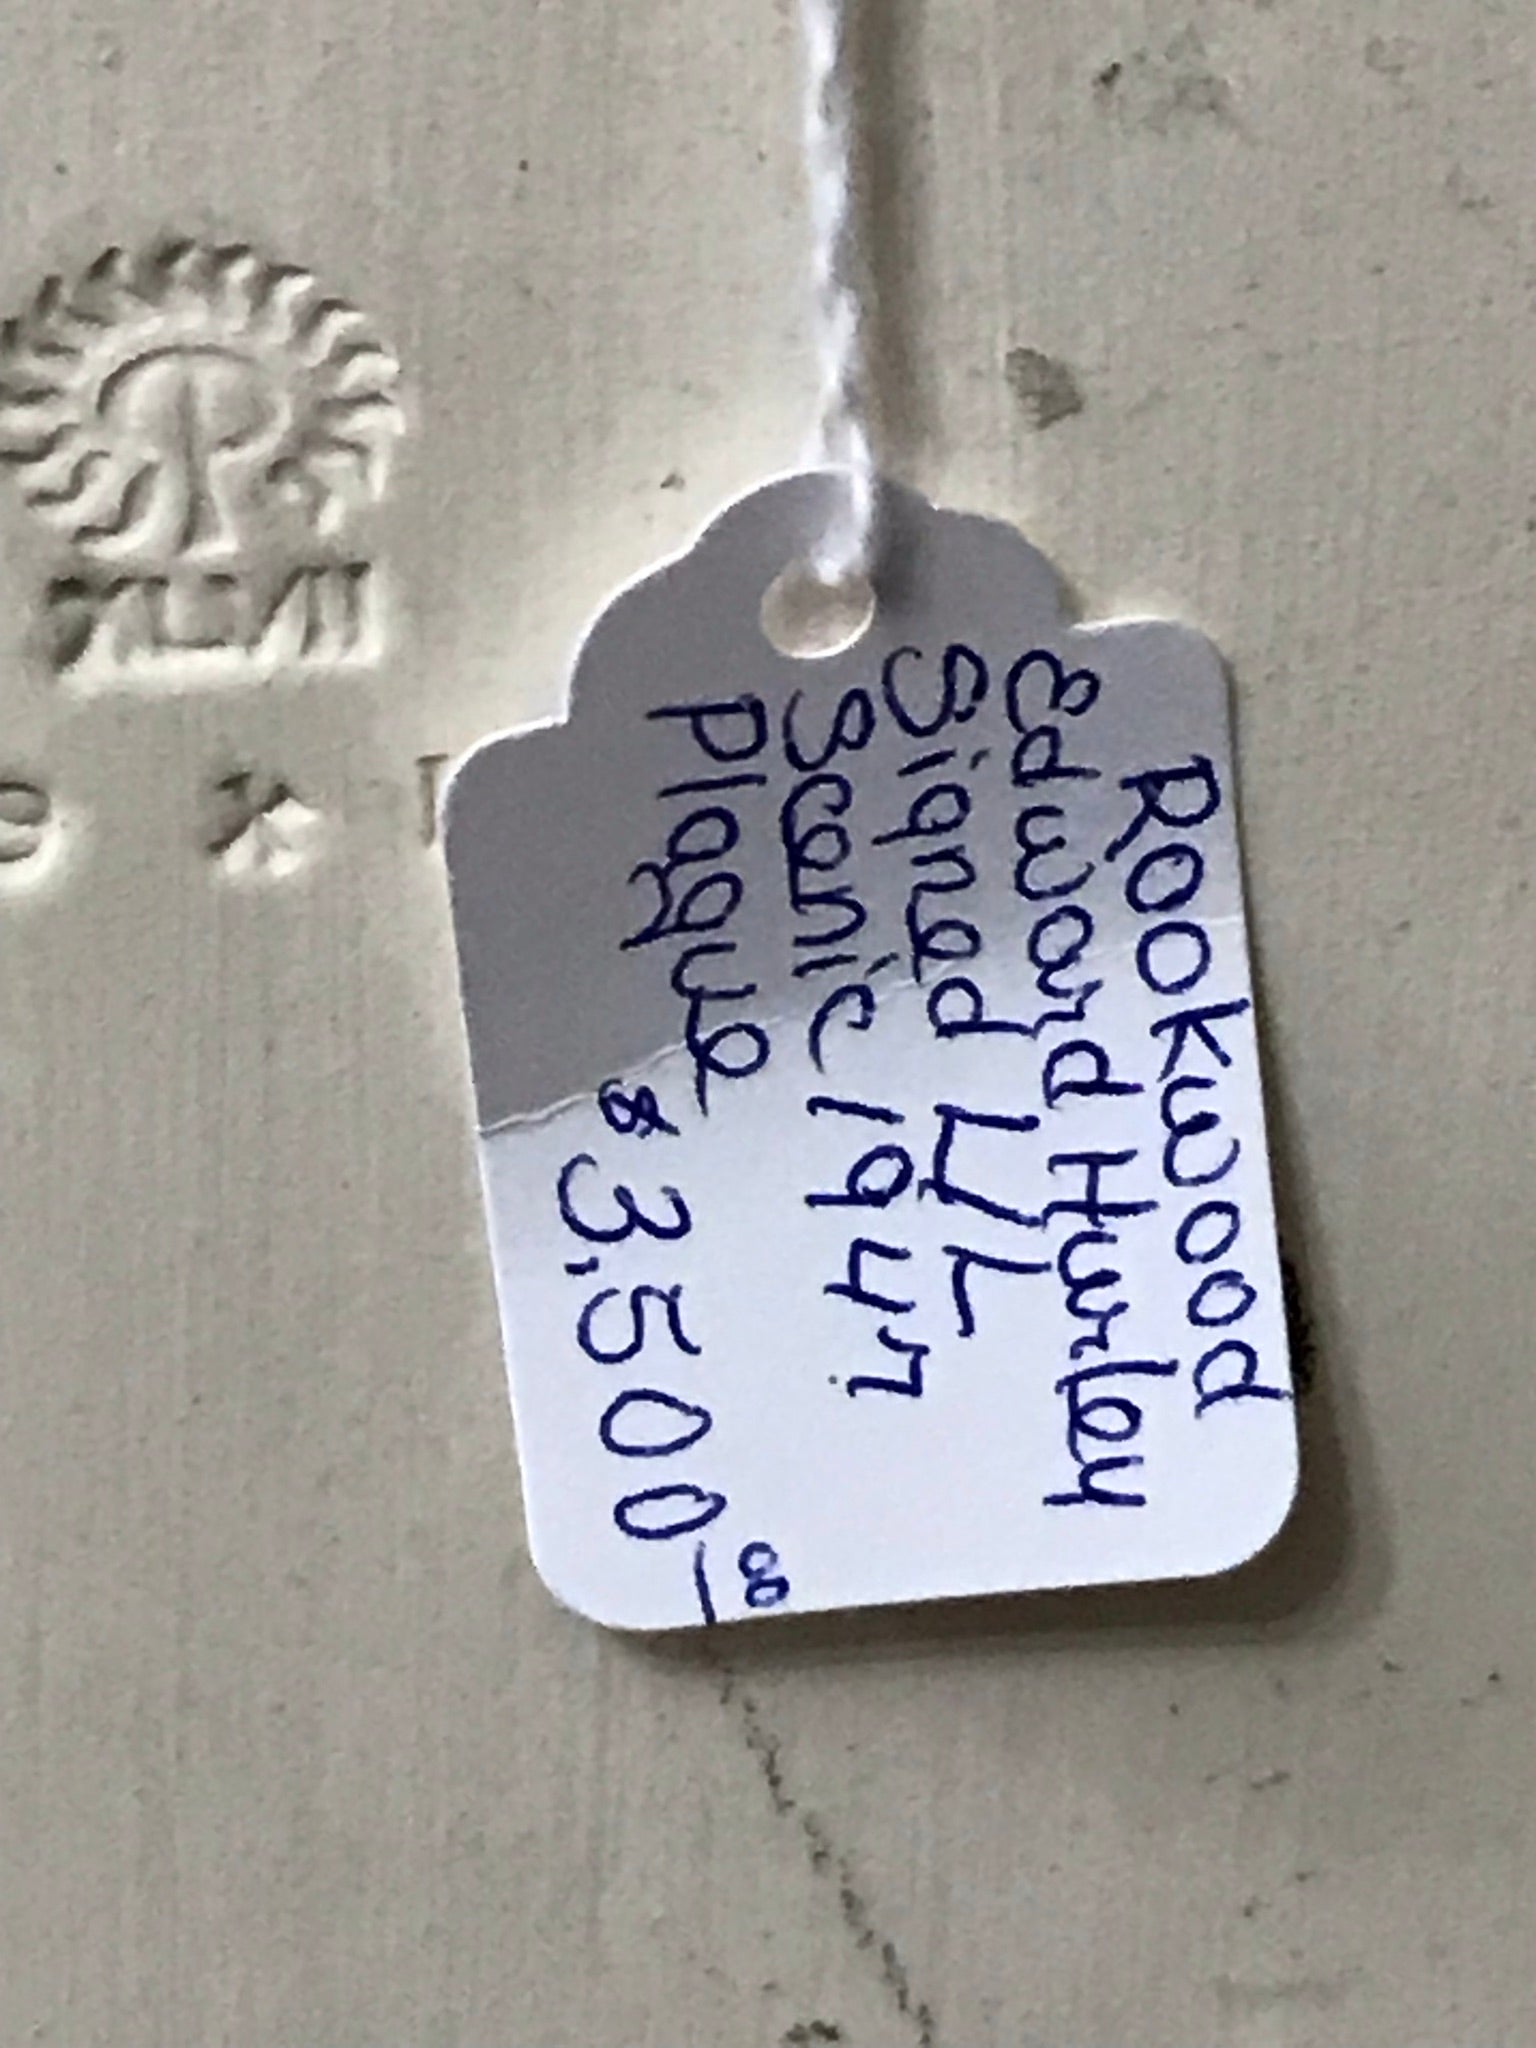 XLVII
Rookwood
Edward Hurley
Signed
Scenic 1947
Plaque
$3,500.00